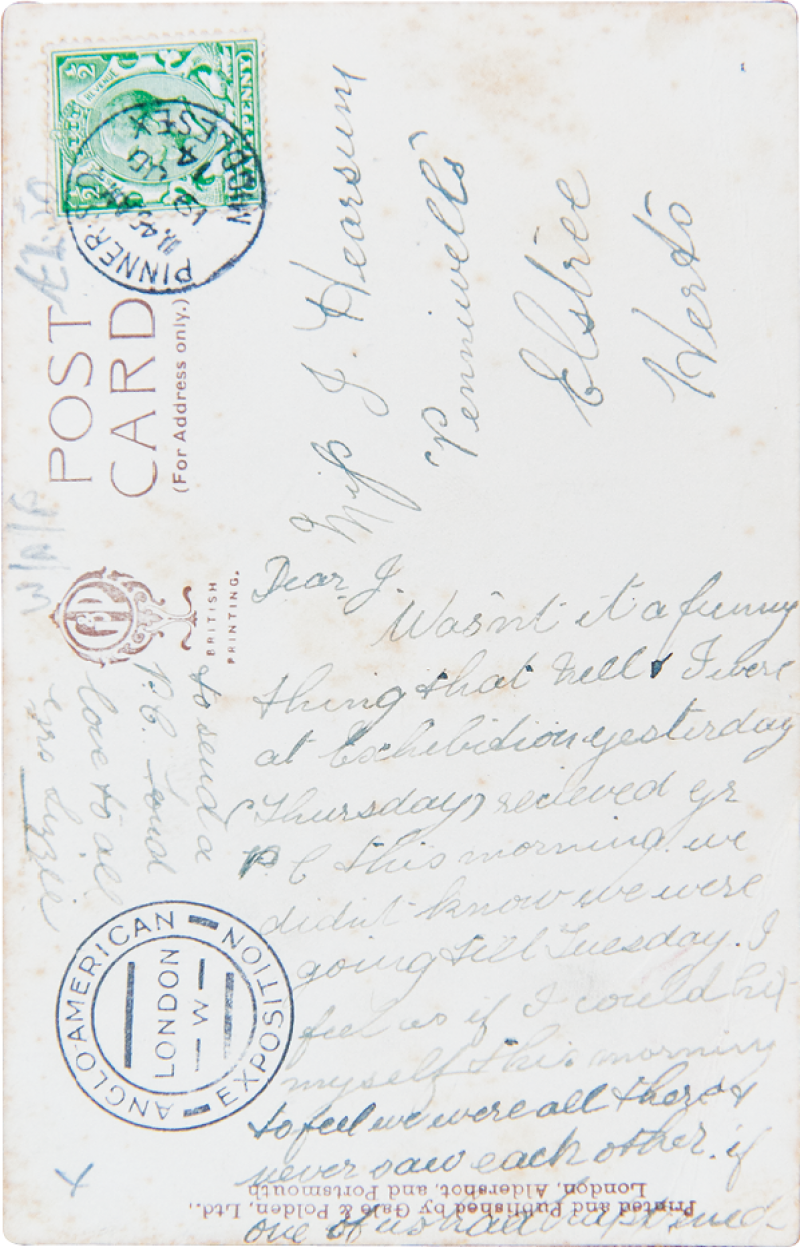 ½ REVENUE ½
PENNY
PINNER S.O.
11.45 AM
19 JU
14
MIDDLESEX
£1.50
POST
CARD
(For Address only.)
W/A/A
BRITISH
PRINTING.
Miss J. Hearsum
Penniwells
Elstree
Herts
Dear J.
Wasn't it a funny
thing that Nell & I were
at Exhibition yesterday
(Thursday) recieved yr
P.C this morning. we
didn't know we were
going till Tuesday. I
feel as if I could hit
myself this morning
to feel we were all there &
never saw each other. if
one of us had happened
to send a
P.C. Fond
love to all
Lizzie
ANGLO-AMERICAN
EXPOSITION
LONDON
W
X
Printed and Published by Gale & Polden, Ltd.,
London, Aldershot, and Portsmouth